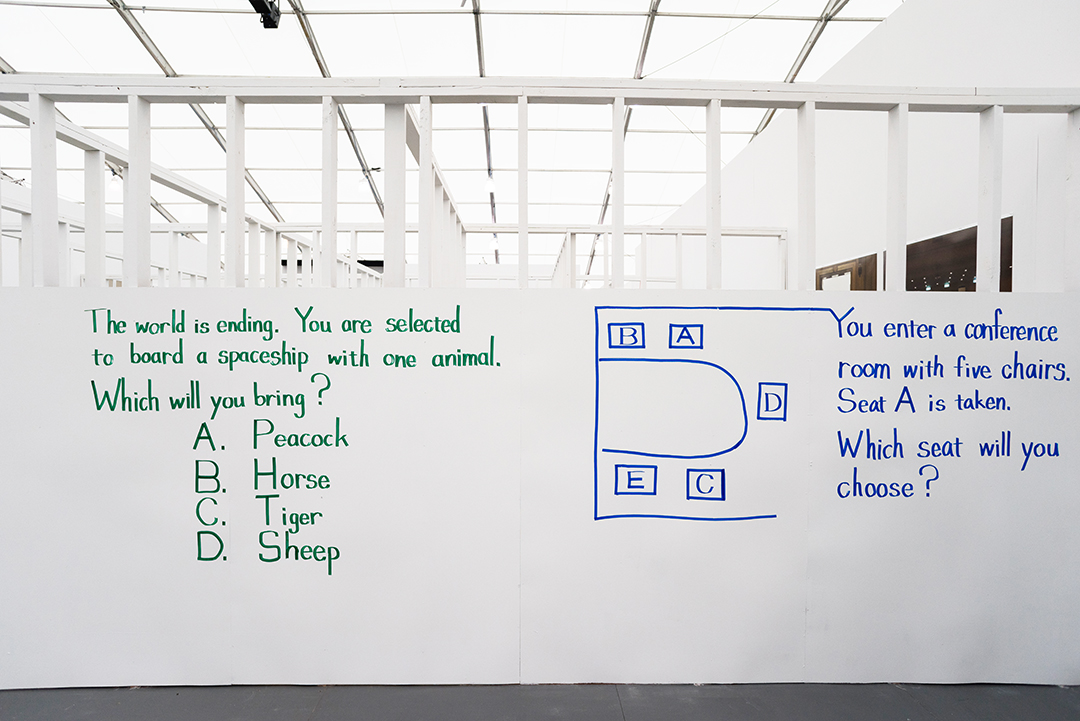 The world is ending. You are selected
to board a spaceship with one animal.
Which will you bring?
A. Peacock
B. Horse
C. Tiger
D. Sheep
B A
D
E C
You enter a conference
room with five chairs.
Seat A is taken.
Which seat will you
choose?